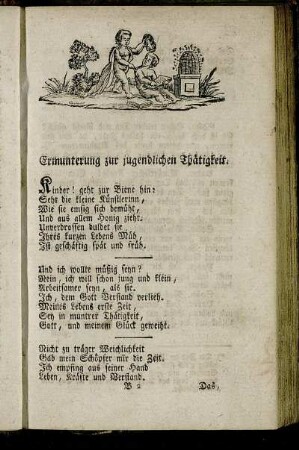 Ermunterung zur jugendlichen Thätigkeit.
Kinder! geht zur Biene hin:
Seht die kleine Künstlerinn,
Wie sie emsig sich bemüht,
Und aus allem Honig zieht.
Unverdrossen duldet sie
Ihres kurzen Lebens Müh,
Ist geschäftig spät und früh.
Und ich wollte müßig seyn?
Nein, ich will schon jung und klein,
Arbeitsamer seyn, als sie.
Ich, dem Gott Verstand verlieh.
Meines Lebens erste Zeit,
Sey in muntrer Thätigkeit,
Gott, und meinem Glück geweiht.
Nicht zu träger Weichlichkeit
Gab mein Schöpfer mir die Zeit.
Ich empfing aus seiner Hand
Leben, Kräfte und Verstand.
B 2 Das